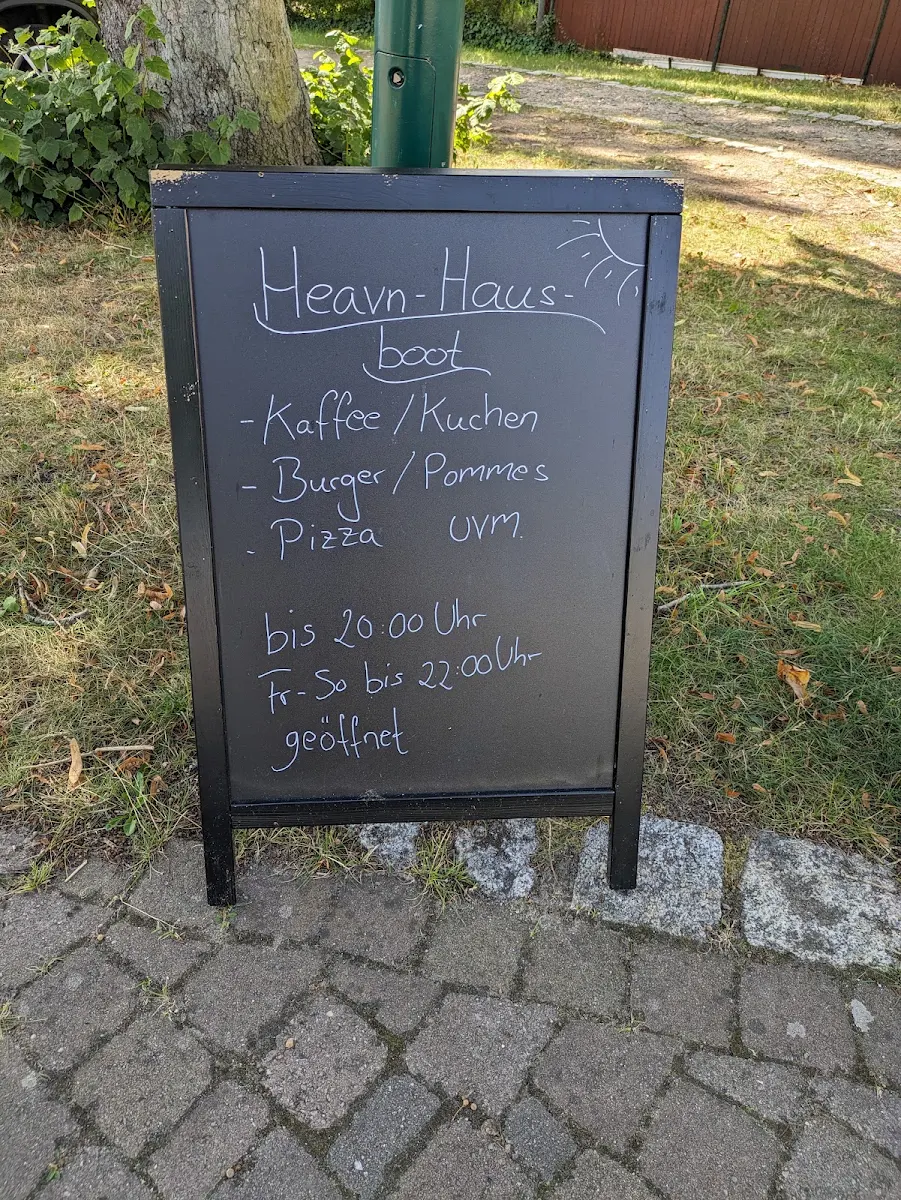 Heavn-Haus-
boot
- Kaffee / Kuchen
- Burger / Pommes
- Pizza uvm.
bis 20:00 Uhr
Fr-So bis 22:00 Uhr
geöffnet